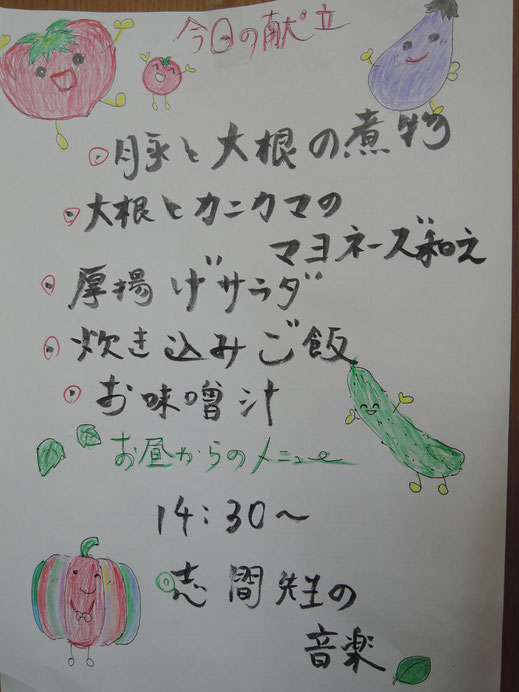 今日の献立
豚と大根の煮物
大根とカニカマの
マヨネーズ和え
厚揚げサラダ
炊き込みご飯
お味噌汁
お昼からのメニュー
14:30〜
志間先生の
音楽